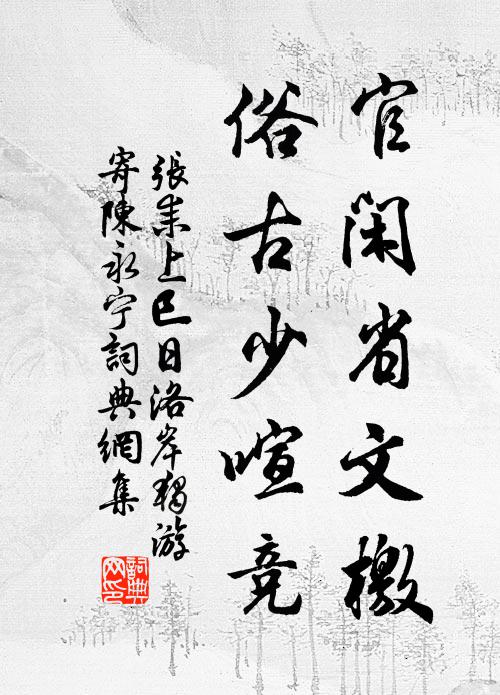 官閑省文檄
俗古少喧竞
張耒上巳日洛岸獨游
寄陳永宁詞典網集
詞典网印